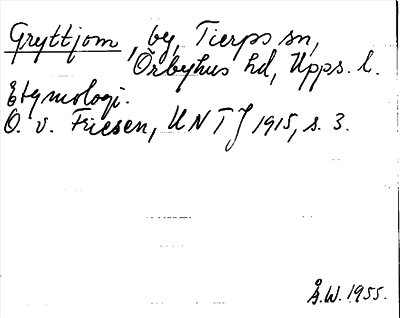 Gryttjom, by, Tierps sn,
Örbyhus hd, Upps. l.
Etymologi.
O. v. Friesen, UNT J 1915, s. 3.
Å.W. 1955.